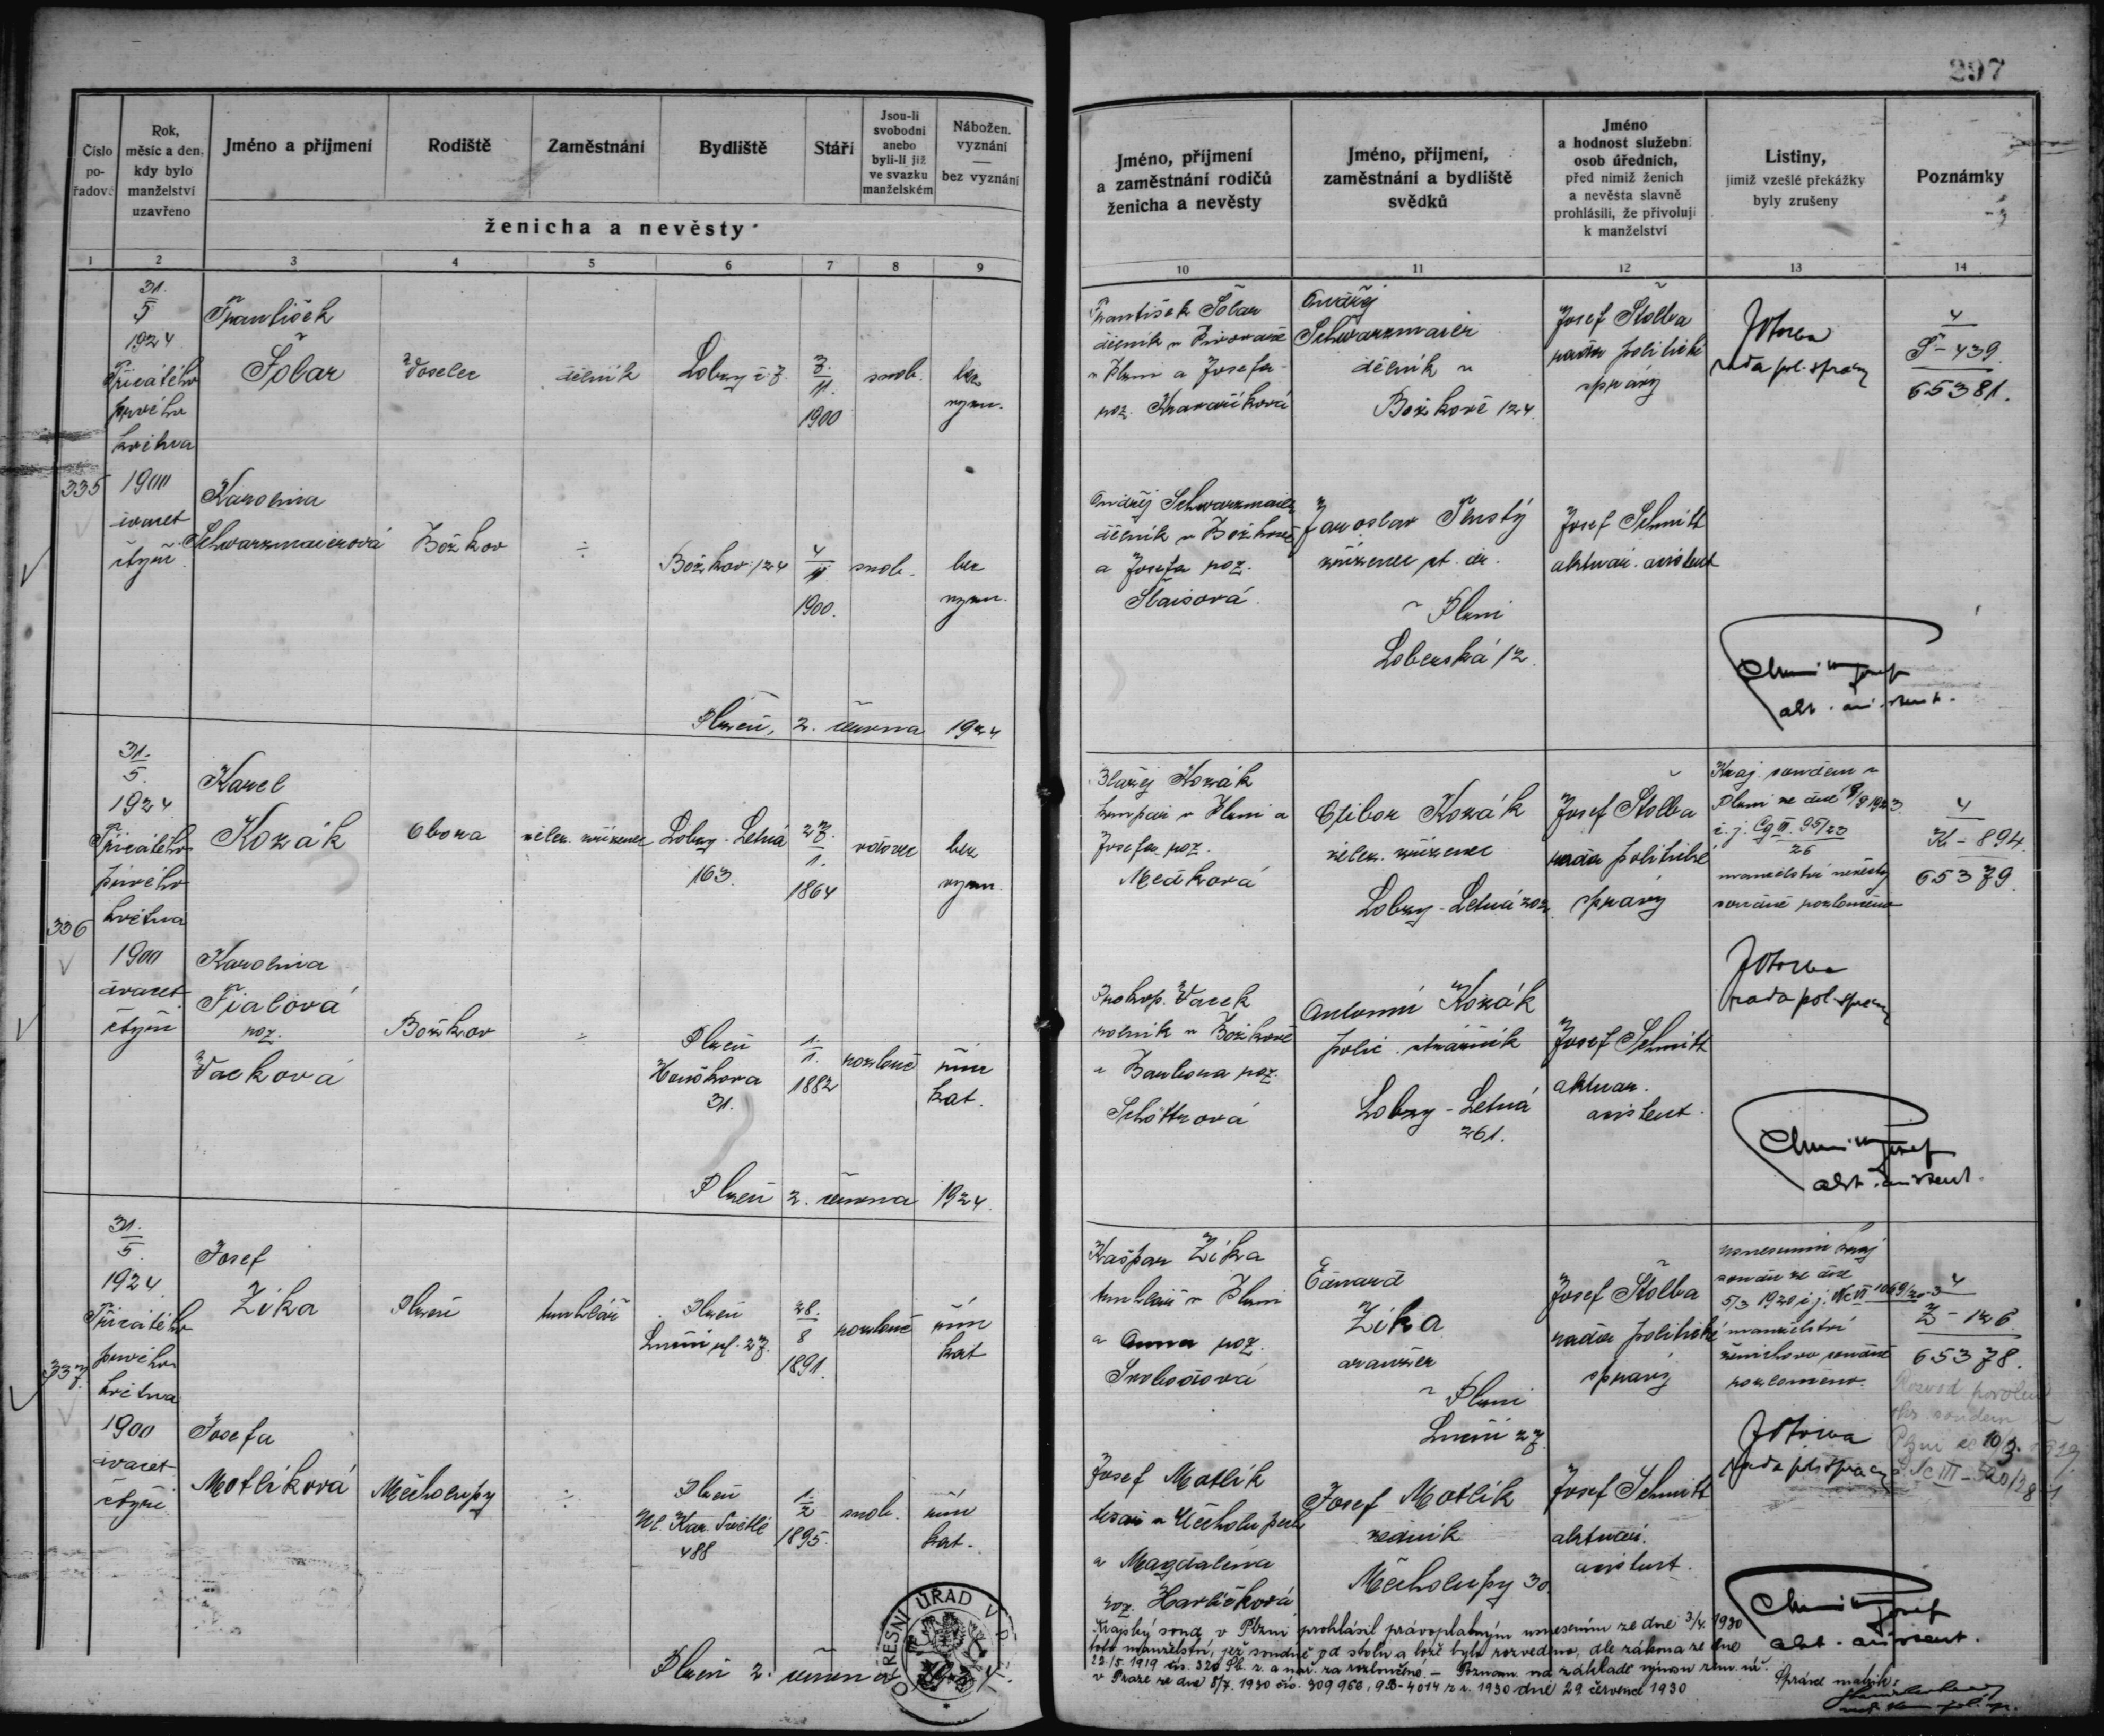 297
Číslo pořadové
Rok, měsíc a den, kdy bylo manželství uzavřeno
Jméno a příjmení
Rodiště
Zaměstnání
Bydliště
Stáří
Jsou-li svobodni anebo byli-li již ve svazku manželském
Nábožen. vyznání — bez vyznání
ženicha a nevěsty
Jméno, příjmení a zaměstnání rodičů ženicha a nevěsty
Jméno, příjmení, zaměstnání a bydliště svědků
Jméno a hodnost služebn. osob úředních, před nimiž ženich a nevěsta slavně prohlásili, že přivolují k manželství
Listiny, jimiž vzešlé překážky byly zrušeny
Poznámky
1 2 3 4 5 6 7 8 9 10 11 12 13 14
335
31./5 1924
Třicátého
prvého
května
1900
dvacet
čtyři
František
Šolar
dělník
Lobzy č. 7.
7./11. 1900
svob.
bez
vyzn.
František Šolar
dělník v Pivovaře
v Plzni a Josefa
roz.
Ondřej
Schwarzmaier
dělník v
Božkově 124
Josef Štolba
rada politické
správy
rada pol. správy
4
Š-439
65381.
Karolina
Schwarzmaierová
Božkov
÷
Božkov 124
4/11. 1900.
svob.
bez
vyzn.
Ondřej Schwarzmaier
dělník v Božkově
a Josefa roz.
Jaroslav
zřízenec st. dr.
v Plzni
Lobezská 12.
Josef Schmitt
aktuar. asistent
akt. asistent.
Plzeň, 2. června 1924
336
31./5. 1924
Třicátého
prvého
května
1900
dvacet
čtyři
Karel
Kozák
Obora
želez. zřízenec
Lobzy-Letná
163.
27./1. 1864
vdovec
bez
vyzn.
Blažej Kozák
v Plzni a
Josefa roz.
Medková
Ctibor Kozák
želez. zřízenec
Lobzy-Letná 202
Josef Štolba
rada politické
správy
Kraj. soudem v
Plzni ze dne 8/9 1923
č. j. Cg II. 95/23
26
manželství nevěsty
soudně rozloučeno
rada pol. správy
4
K-894
65379.
Karolina
Fialová
roz.
Vacková
Božkov
÷
Plzeň
Houškova
31.
1./1. 1882
rozlouč.
řím.
kat.
Prokop. Vacek
rolník v Božkově
a Barbora roz.
Antonín Kozák
polic. strážník
Lobzy-Letná
261.
Josef Schmitt
aktuar.
asistent.
akt. asistent.
Plzeň 2. června 1924.
337
31./5. 1924.
Třicátého
prvého
května
1900
dvacet
čtyři
Josef
Zíka
Plzeň
truhlář
Plzeň
Luční ul. 27.
28./8 1891.
rozlouč.
řím.
kat
Kašpar Zíka
truhlář v Plzni
a Anna roz.
Svobodová
Eduard
Zíka
aranžér
v Plzni
Luční 27
Josef Štolba
rada politické
správy
usnesením kraj.
soudu ze dne
5/3 1920 č. j. Nc VI 1069/20-3
manželství
ženichovo soudně
rozloučeno.
rada pol. správy
4
Z-126
65378.
Rozvod povolen
okr. soudem v
Plzni ze 10/3.
Nc III-520/28
Josefa
Motlíková
Měcholupy
÷
Plzeň
Ul. Kar. Světlé
488
1./2 1895.
svob.
řím.
kat.
Josef Motlík
tesař v Měcholupech
a Magdalena
roz. Havlíčková
Josef Motlík
zedník
Měcholupy 30
Josef Schmitt
aktuar.
asistent.
akt. asistent.
Plzeň 2. června
OKRESNÍ ÚŘAD V
Krajský soud v Plzni prohlásil právoplatným usnesením ze dne 3/4. 1930
toto manželství, jež soudně od stolu a lože bylo rozvedeno, dle zákona ze dne
22./5. 1919 čís. 320 Sb. z. a nař. za rozloučené. — Poznam. na základě výnosu zem. úř.
v Praze ze dne 8/7. 1930 čís. 309 966, 9B-4014 z r. 1930 dne 29. července 1930
Správce matrik: